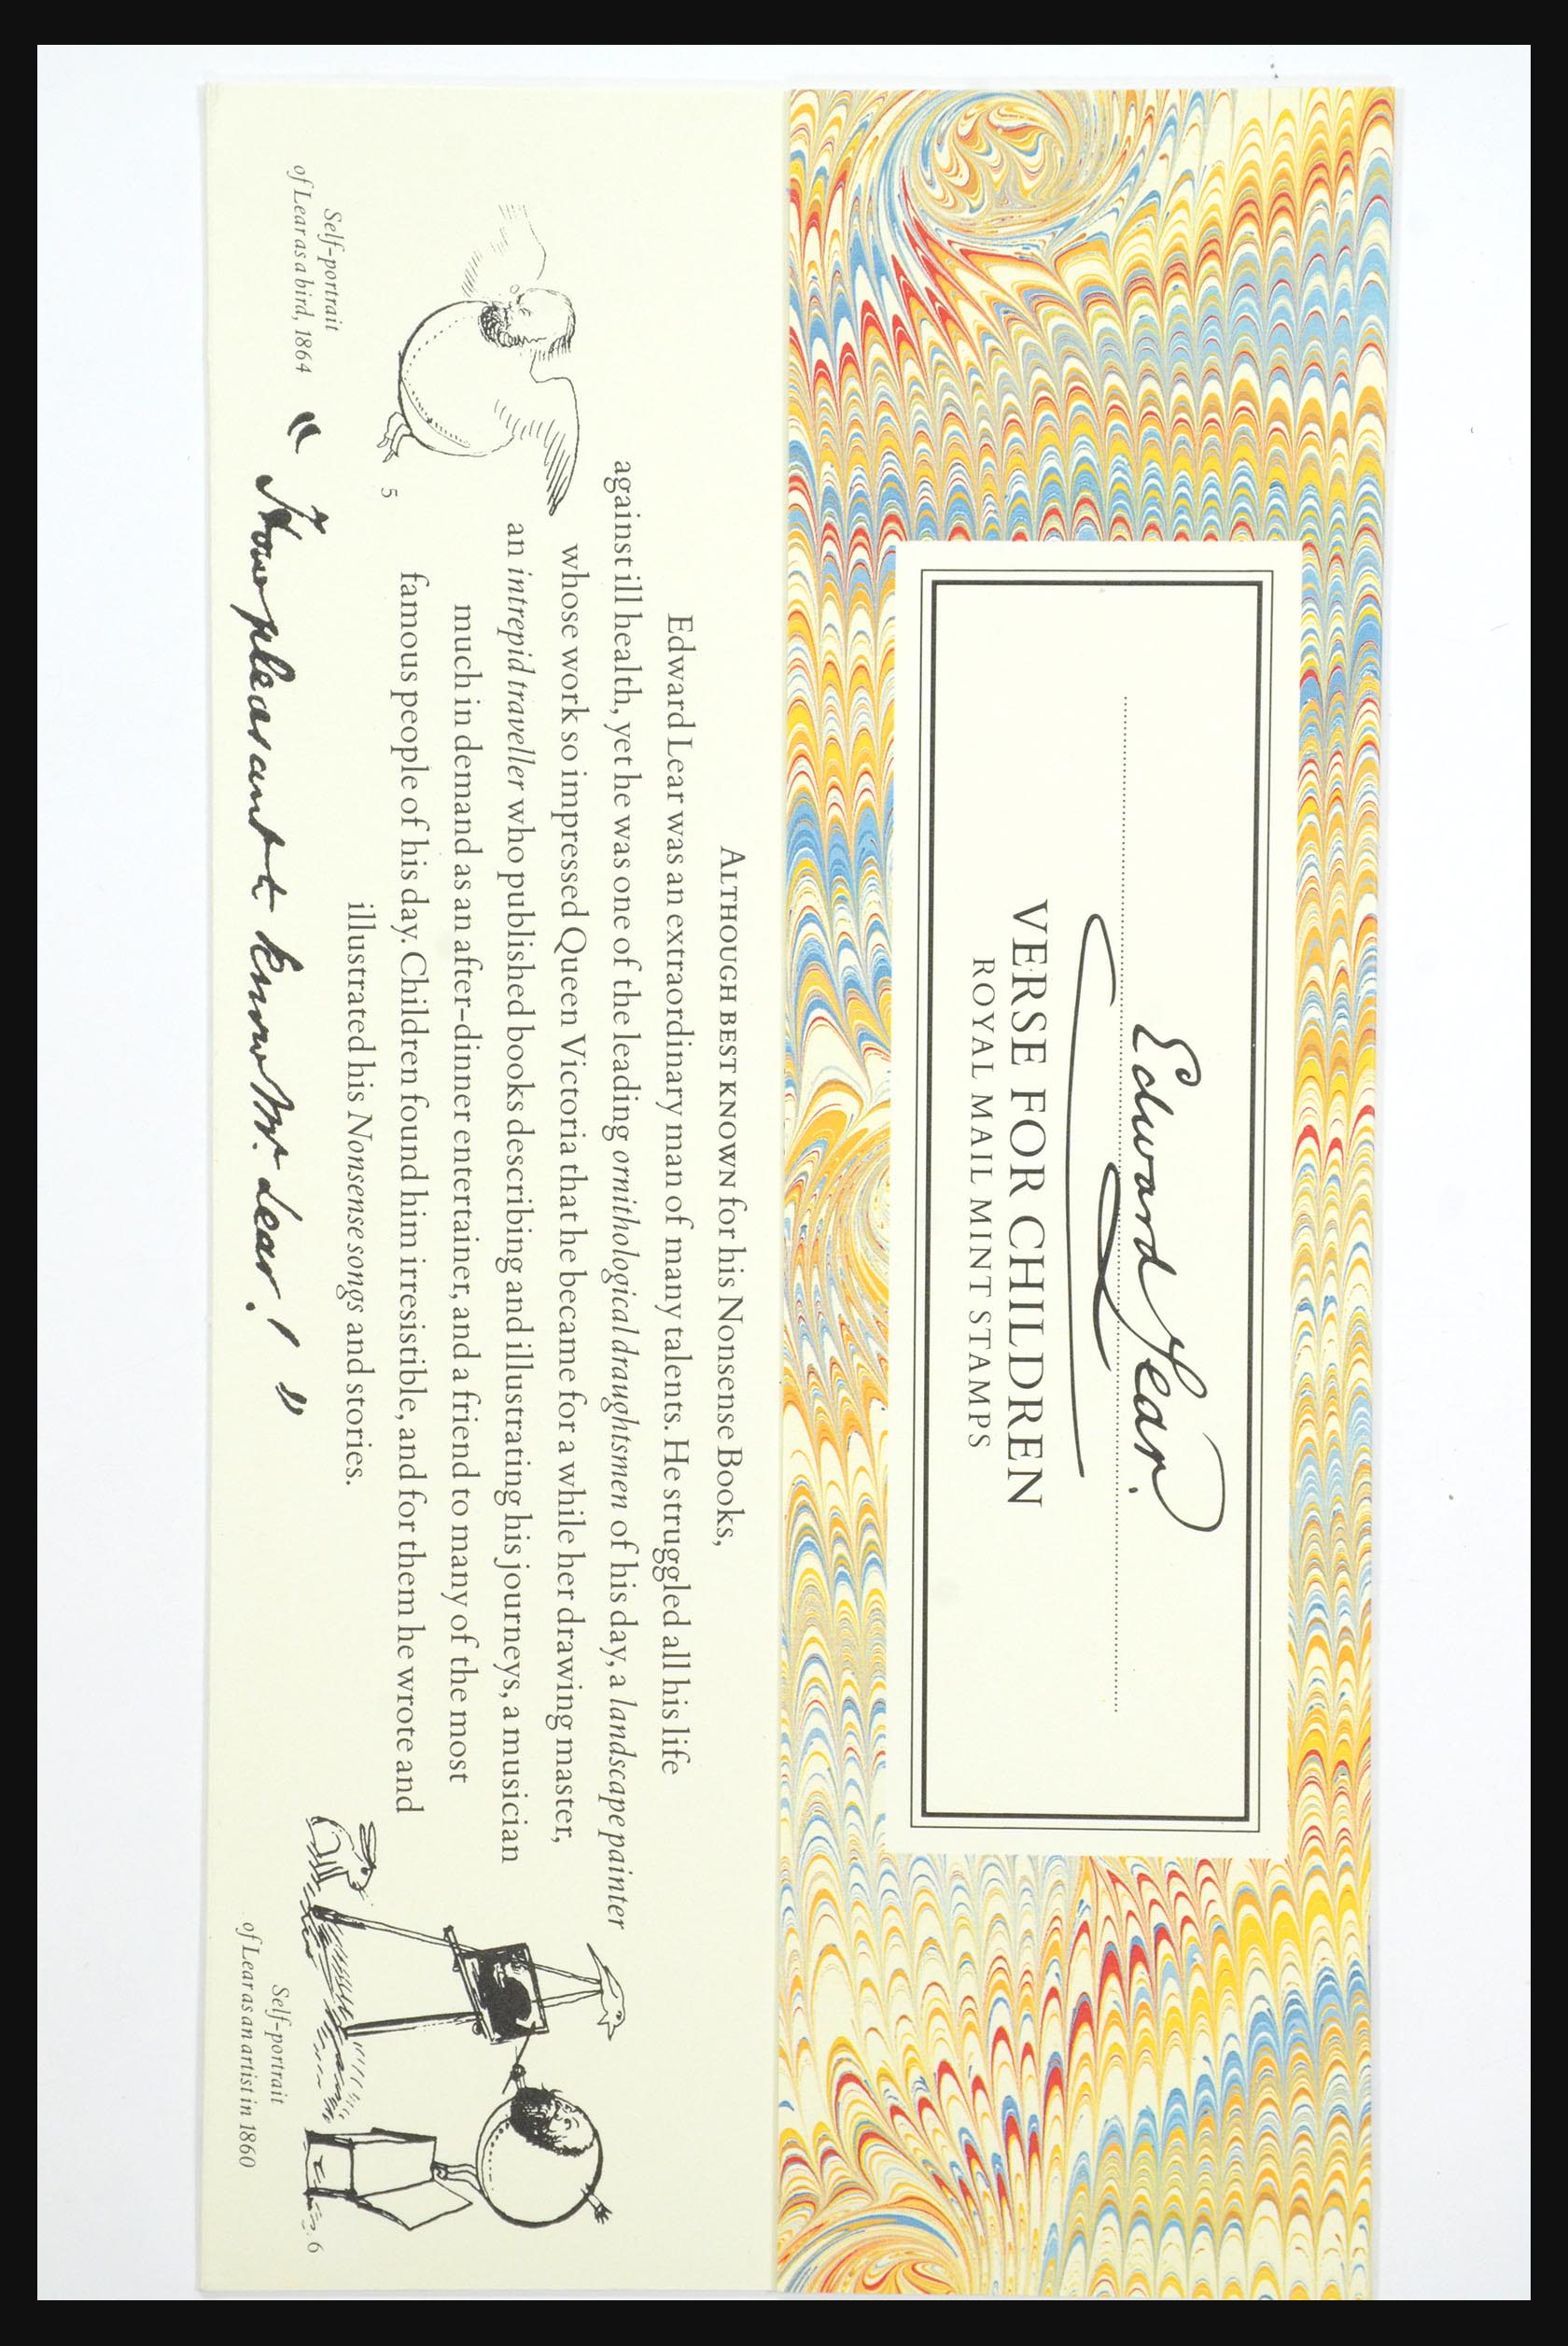 Edward Lear.
VERSE FOR CHILDREN
ROYAL MAIL MINT STAMPS
ALTHOUGH BEST KNOWN for his Nonsense Books,
Edward Lear was an extraordinary man of many talents. He struggled all his life
against ill health, yet he was one of the leading ornithological draughtsmen of his day, a landscape painter
whose work so impressed Queen Victoria that he became for a while her drawing master,
an intrepid traveller who published books describing and illustrating his journeys, a musician
much in demand as an after-dinner entertainer, and a friend to many of the most
famous people of his day. Children found him irresistible, and for them he wrote and
illustrated his Nonsense songs and stories.
5
Self-portrait
of Lear as a bird, 1864
"How pleasant to know Mr. Lear!"
6
Self-portrait
of Lear as an artist in 1860